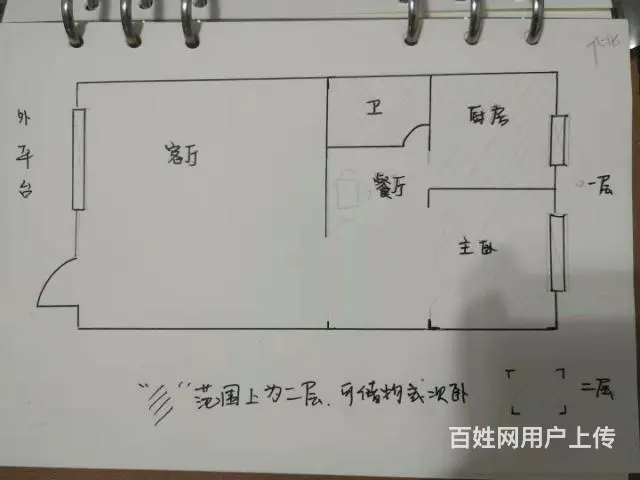 外平台
客厅
卫
厨房
餐厅
一层
主卧
"彡"范围上为二层,可储物或次卧
二层
百姓网用户上传